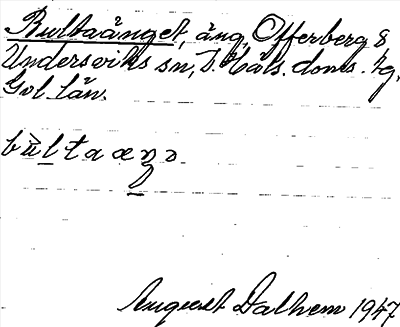 Bultaänget, äng, Offerberg 8,
Undersviks sn, V. Häls. doms. tg,
Gvl. län.
bùltaæŋə.
August Dalhem 1947